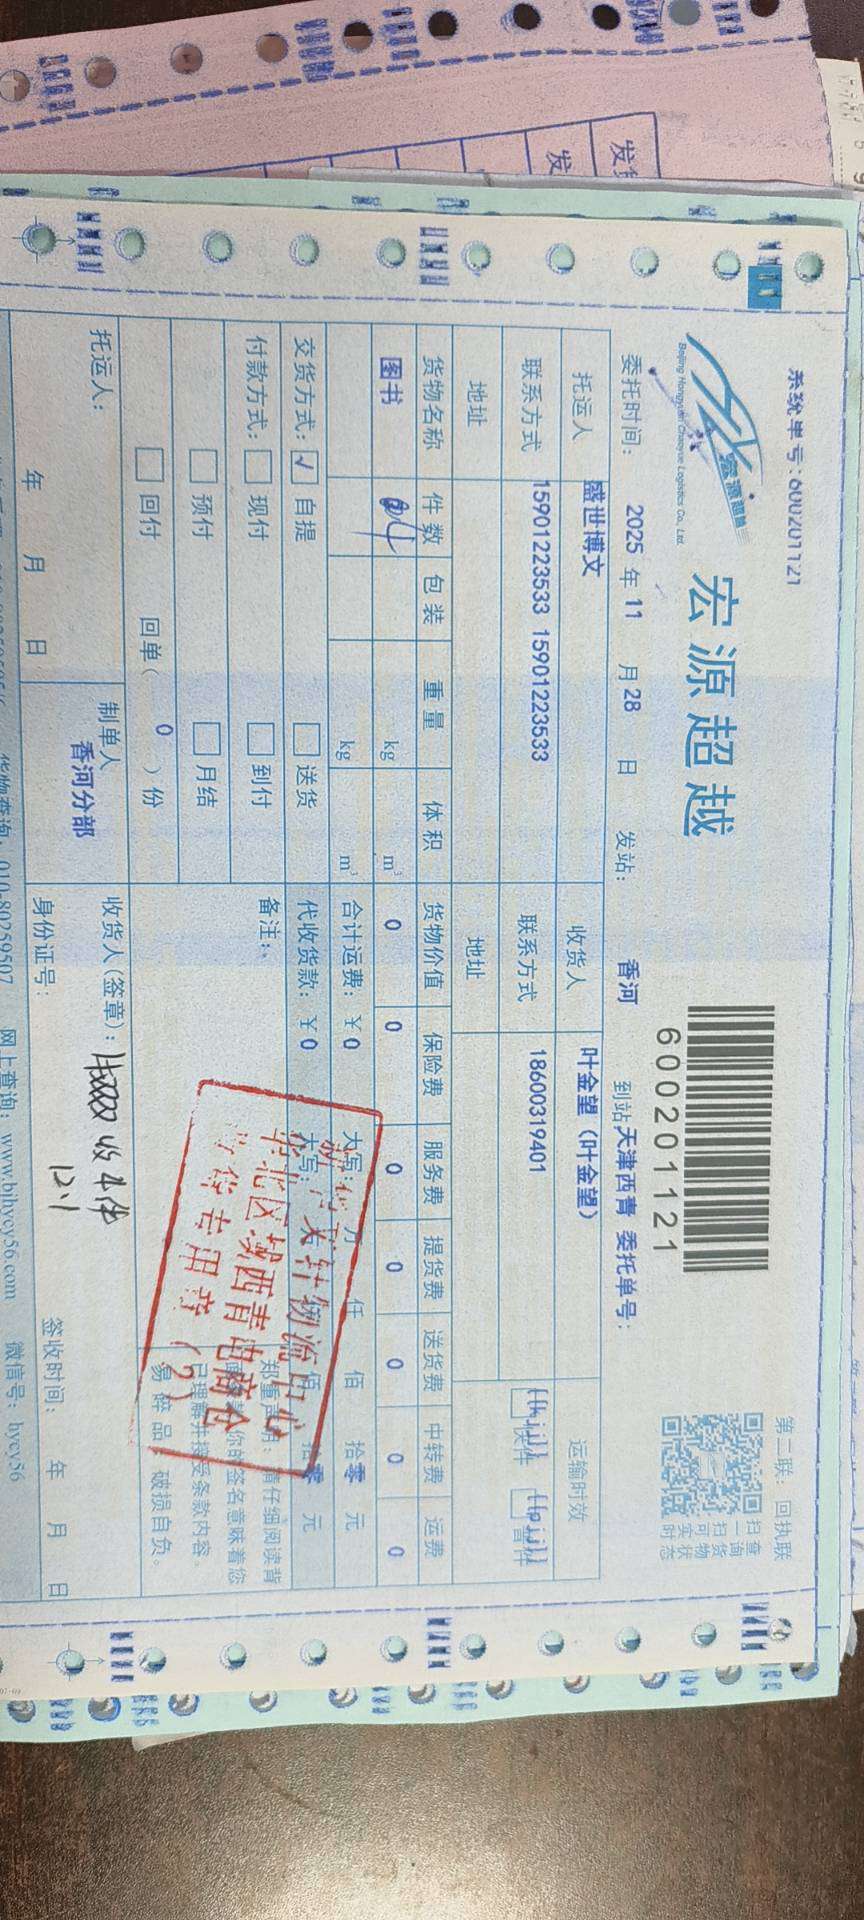 系统单号:600201121
宏源超越
Beijing Hongyuan Chaoyue Logistics Co., Ltd.
600201121
第二联：回执联
扫一扫
查询货物
可实时状态
委托时间： 2025 年 11 月 28 日 发站： 香河 到站 天津西青 委托单号：
托运人 盛世博文 收货人 叶金望（叶金望） 运输时效
联系方式 15901223533 15901223533 联系方式 18600319401
地址 地址
货物名称 件数 包装 重量 体积 货物价值 保险费 服务费 提货费 送货费 中转费 运费
图书 kg m³ 0 0 0 0 0 0 0
kg m³ 合计运费：￥0 大写： 万 仟 佰 拾 零 元
交货方式： ☑ 自提 □ 送货 代收货款：￥0 大写： 佰 拾 零 元
付款方式： □ 现付 □ 到付 备注：
□ 预付 □ 月结
□ 回付 回单（ 0 ）份
郑重声明：请仔细阅读背
你的签名意味着您
已理解并接受条款内容。
易碎品，破损自负。
物流中心
华北区域西青电商仓
收货专用章（2）
托运人： 制单人 香河分部 收货人（签章）：
12.1
年 月 日 身份证号： 签收时间： 年 月 日
货物查询：010-80259507 网上查询：www.bjhycy56.com 微信号：hycy56
发
发